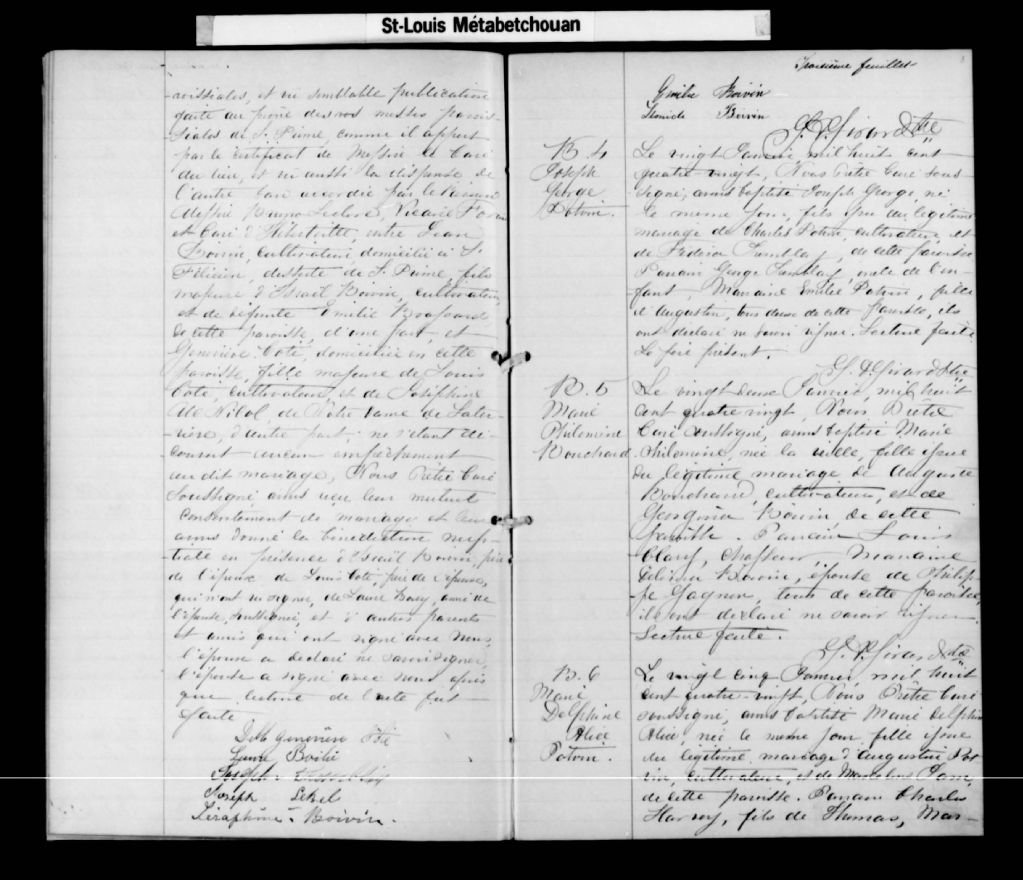 St-Louis Métabetchouan
et si semblable publication
faite au prône de nos messes parois-
siales de St. Prime comme il appert
par le certificat de Messire le Curé
du lieu, et vu aussi la dispense de
l'autre ban accordée par le Révérend
Messire Bruno Leclerc, Vicaire Forain
et Curé d'Hébertville, entre Jean
Boivin, cultivateur domicilié à St
Félicien, desserte de St. Prime, fils
majeur d'Israël Boivin, cultivateur,
et de défunte Emilie Brassard
de cette paroisse, d'une part, et
Geneviève Coté, domiciliée en cette
paroisse, fille majeure de Louis
Coté, cultivateur, et de Joséphine
McNicol, de Notre Dame de Later-
rière, d'autre part; ne s'étant dé-
couvert aucun empêchement
au dit mariage, Nous Prêtre Curé
Soussigné avons reçu leur mutuel
consentement de mariage et leur
avons donné la bénédiction nup-
tiale en présence d'Israël Boivin, père
de l'époux, de Louis Coté, père de l'épouse,
qui n'ont su signer, de Laure amie de
l'épouse, soussignée, et d'autres parents
et amis qui ont signé avec Nous,
l'époux a déclaré ne savoir signer,
l'épouse a signé avec nous après
que lecture de l'acte fut
faite
Geneviève Coté
Boilié
Joseph
Joseph
Séraphine Boivin.
Troisième feuillet
Emilie Boivin
Boivin
Girard Ptre
B. 4
Joseph
George
Potvin.
Le vingt Janvier mil huit cent
quatre vingt, Nous Prêtre Curé sous-
signé, avons baptisé Joseph George, né
le même jour, fils issu du légitime
mariage de Charles Potvin, cultivateur, et
de Tremblay, de cette paroisse
Parrain George Tremblay, oncle de l'en-
fant, Marraine Emilie Potvin, fille
d'Augustin, tous deux de cette paroisse, ils
ont déclaré ne savoir signer. Lecture faite
Le père présent.
Girard Ptre
B. 5
Marie
Philomène
Bouchard.
Le vingt deux Janvier, mil huit
cent quatre vingt, Nous Prêtre
Curé Soussigné, avons baptisé Marie
Philomène, née la veille, fille issue
du légitime mariage de Auguste
Bouchard, cultivateur, et de
Georgina Boivin de cette
paroisse. Parrain Louis
Marraine
Boivin, épouse de Philip-
pe Gagnon, tous de cette paroisse,
ils ont déclaré ne savoir signer
Lecture faite.
Girard Ptre
B. 6
Marie
Delphine
Alice
Potvin.
Le vingt cinq Janvier, mil huit
cent quatre vingt, Nous Prêtre Curé
soussigné, avons baptisé Marie Delphine
Alice, née le même jour, fille issue
du légitime mariage d'Augustin Pot-
vin, cultivateur, et de
de cette paroisse. Parrain Charles
Harvey, fils de Thomas, Mar-